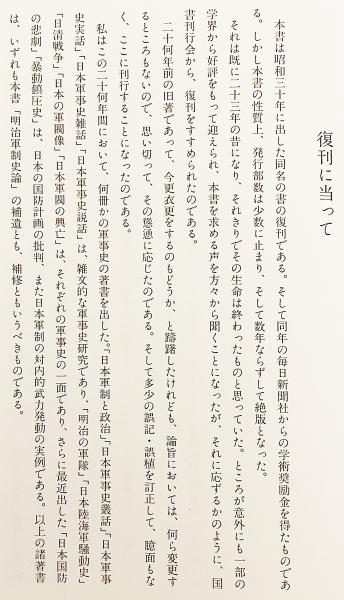 復刊に当って
本書は昭和三十年に出した同名の書の復刊である。そして同年の毎日新聞社からの学術奨励金を得たものであ
る。しかし本書の性質上、発行部数は少数に止まり、そして数年ならずして絶版となった。
それは既に二十三年の昔になり、それきりでその生命は終わったものと思っていた。ところが意外にも一部の
学界から好評をもって迎えられ、本書を求める声を方々から聞くことになったが、それに応ずるかのように、国
書刊行会から、復刊をすすめられたのである。
二十何年前の旧著であって、今更衣更をするのもどうか、と躊躇したけれども、論旨においては、何ら変更す
るところもないので、思い切って、その慫慂に応じたのである。そして多少の誤記・誤植を訂正して、臆面もな
く、ここに刊行することになったのである。
私はこの二十何年間において、何冊かの軍事史の著書を出した。『日本軍制と政治』「日本軍事史叢話」「日本軍事
史実話」「日本軍事史雑話」「日本軍事史説話」は、雑文的な軍事史研究であり、「明治の軍隊」「日本陸海軍騒動史」
「日清戦争」「日本の軍閥像」「日本軍閥の興亡」は、それぞれの軍事史の一面であり、さらに最近出した「日本国防
の悲劇」「暴動鎮圧史」は、日本の国防計画の批判、また日本軍制の対内的武力発動の実例である。以上の諸著書
は、いずれも本書「明治軍制史論」の補遺とも、補修ともいうべきものである。